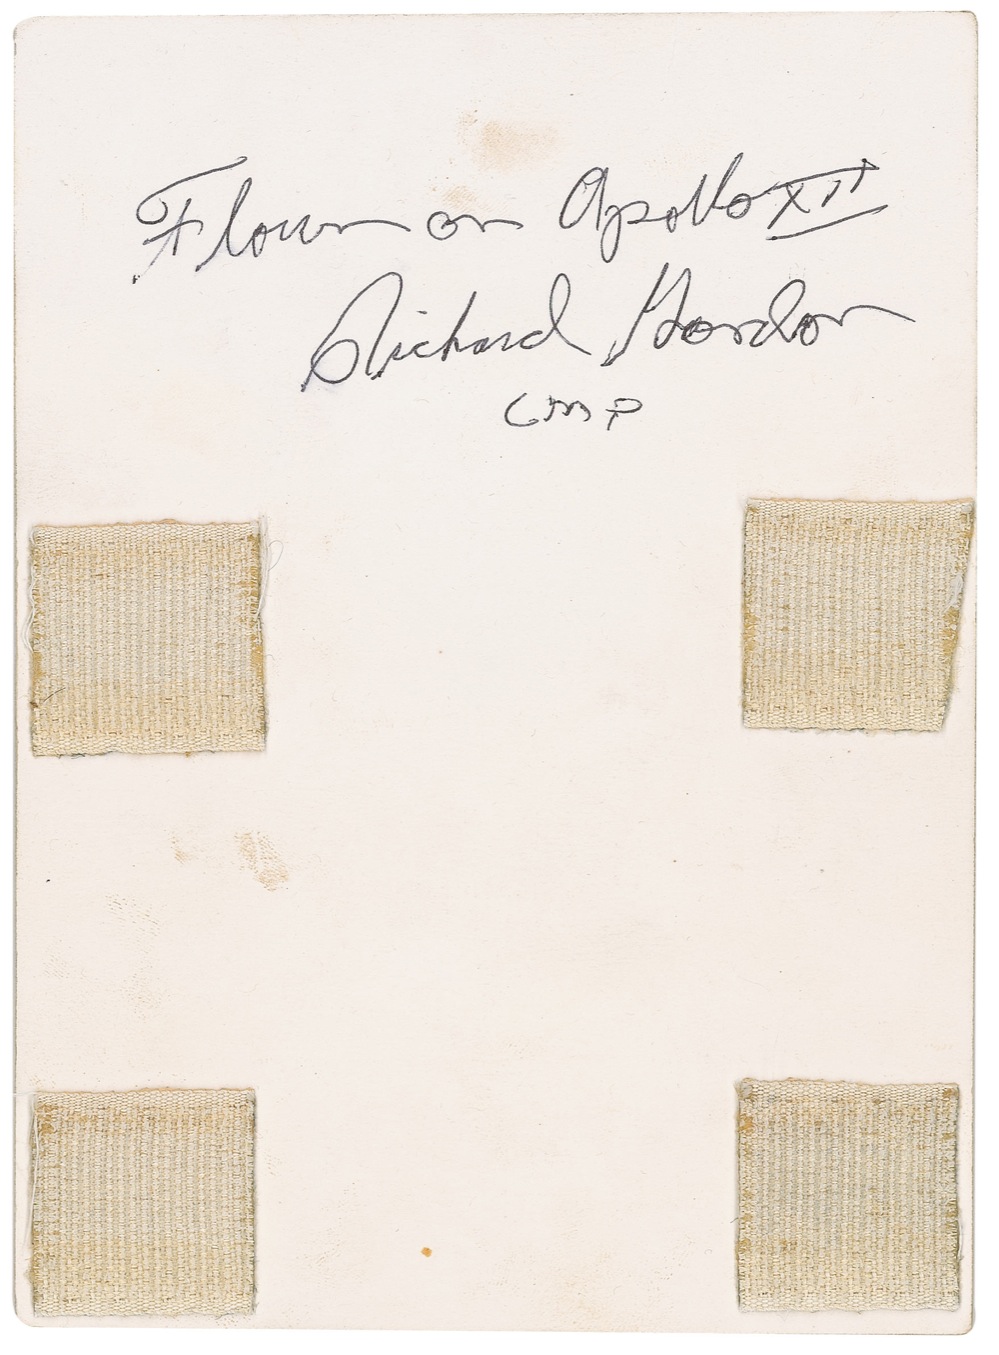 Flown on Apollo XII
Richard Gordon
CMP